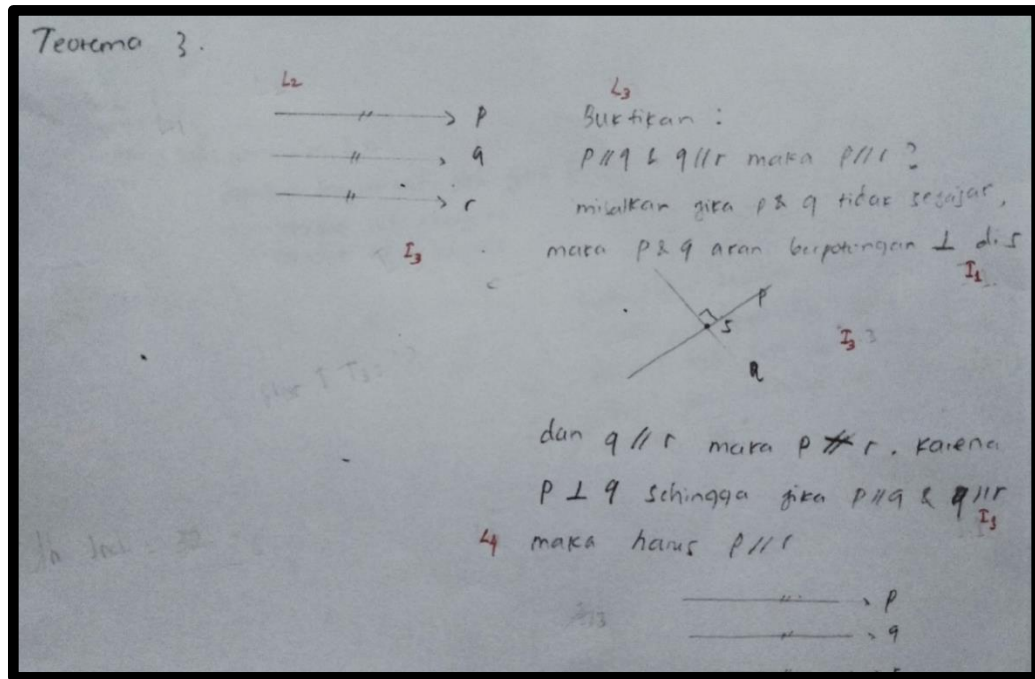 Teorema 3.
L2
p
q
r
I3
L3
Buktikan :
p // q & q // r maka p // r ?
misalkan jika p & q tidak sejajar,
maka p & q akan berpotongan ⊥ di s
I1
p
s
q
I3
dan q // r maka p ∦ r. karena
p ⊥ q sehingga jika p // q & q // r
I3
L4 maka harus p // r
p
q